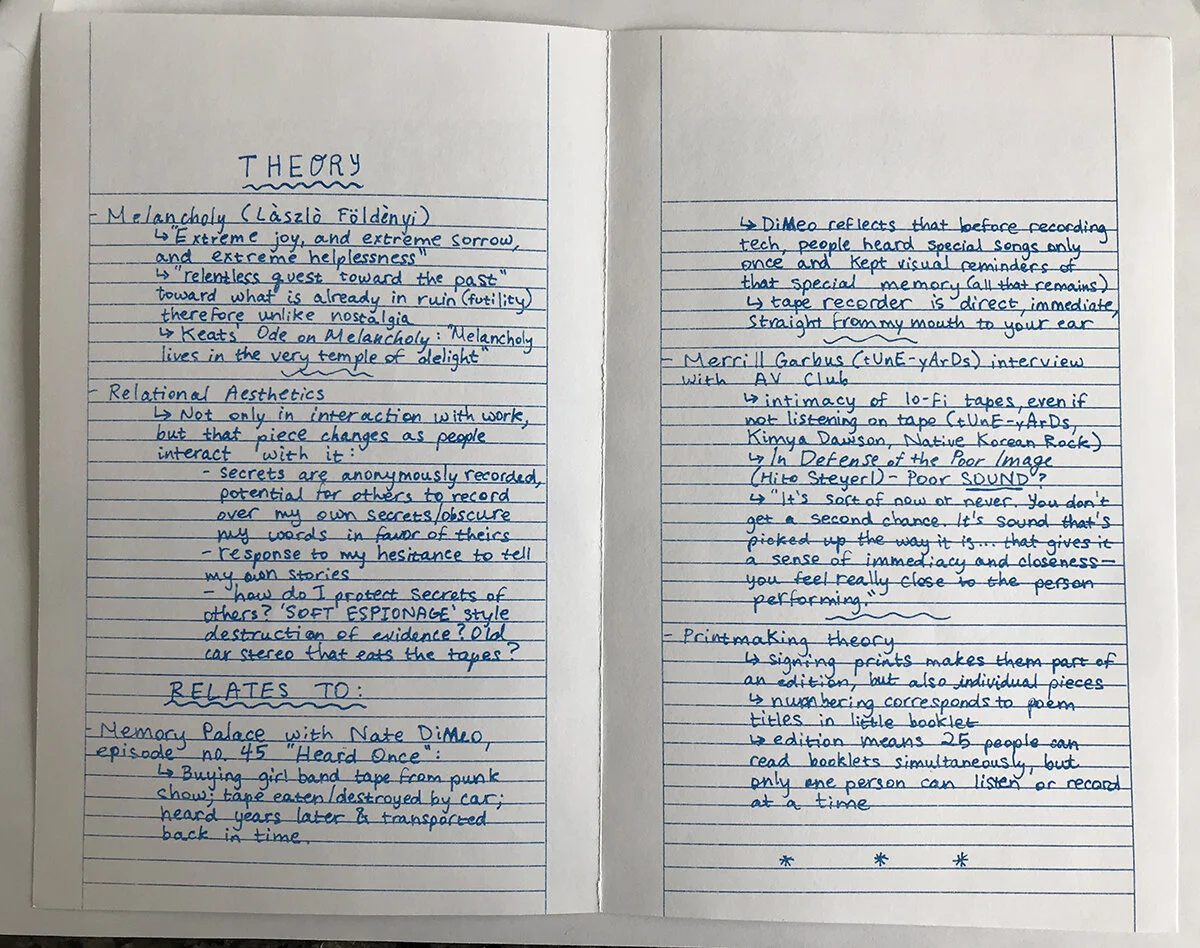 THEORY
- Melancholy (Làszlò Földènyi)
↳ "Extreme joy, and extreme sorrow,
and extreme helplessness"
↳ "relentless quest toward the past"
toward what is already in ruin (futility)
therefore unlike nostalgia
↳ Keats' Ode on Melancholy: "Melancholy
lives in the very temple of delight"
- Relational Aesthetics
↳ Not only in interaction with work,
but that piece changes as people
interact with it:
- secrets are anonymously recorded,
potential for others to record
over my own secrets/obscure
my words in favor of theirs
- response to my hesitance to tell
my own stories
- how do I protect secrets of
others? 'SOFT ESPIONAGE' style
destruction of evidence? Old
car stereo that eats the tapes?
RELATES TO:
- Memory Palace with Nate DiMeo,
episode no. 45 "Heard Once":
↳ Buying girl band tape from punk
show; tape eaten/destroyed by car;
heard years later & transported
back in time.
↳ DiMeo reflects that before recording
tech, people heard special songs only
once and kept visual reminders of
that special memory (all that remains)
↳ tape recorder is direct, immediate,
straight from my mouth to your ear
- Merrill Garbus (tUnE-yArDs) interview
with AV Club
↳ intimacy of lo-fi tapes, even if
not listening on tape (tUnE-yArDs,
Kimya Dawson, Native Korean Rock)
↳ In Defense of the Poor Image
(Hito Steyerl) - Poor SOUND?
↳ "It's sort of now or never. You don't
get a second chance. It's sound that's
picked up the way it is... that gives it
a sense of immediacy and closeness—
you feel really close to the person
performing."
- Printmaking theory
↳ signing prints makes them part of
an edition, but also individual pieces
↳ numbering corresponds to poem
titles in little booklet
↳ edition means 25 people can
read booklets simultaneously, but
only one person can listen or record
at a time
* * *